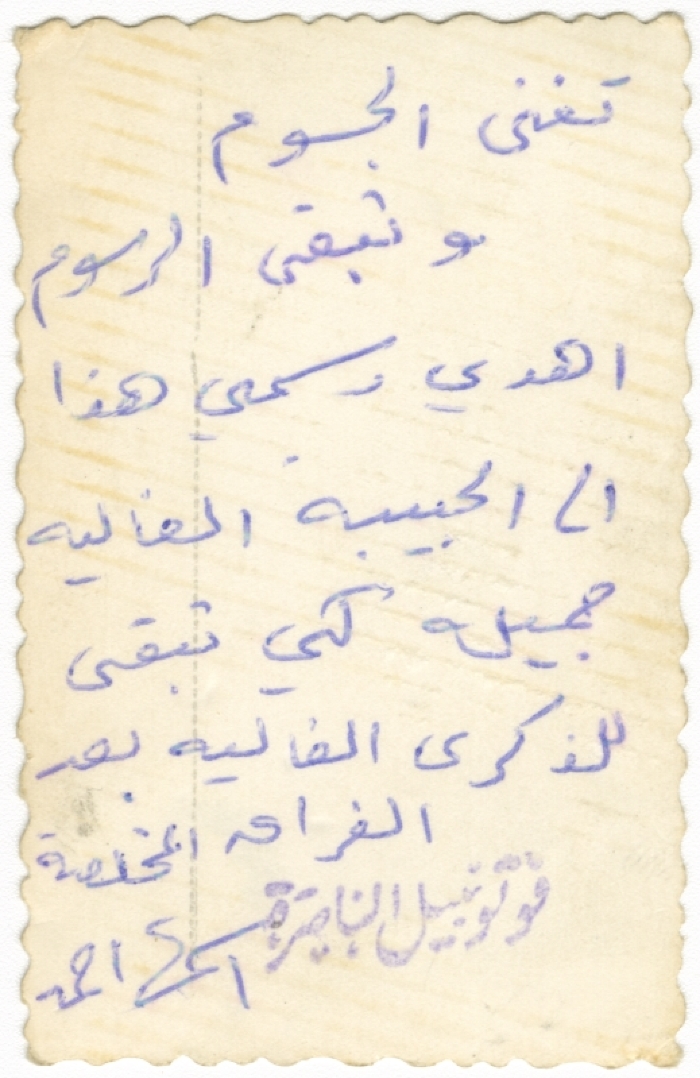 تفنى الجسوم
و تبقى الرسوم
اهدي رسمي هذا
الى الحبيبة الغاليه
جميله لكي تبقى
للذكرى الغاليه بعد
الفراق المخلصة
احمد
فوتو نبيل الناصرة